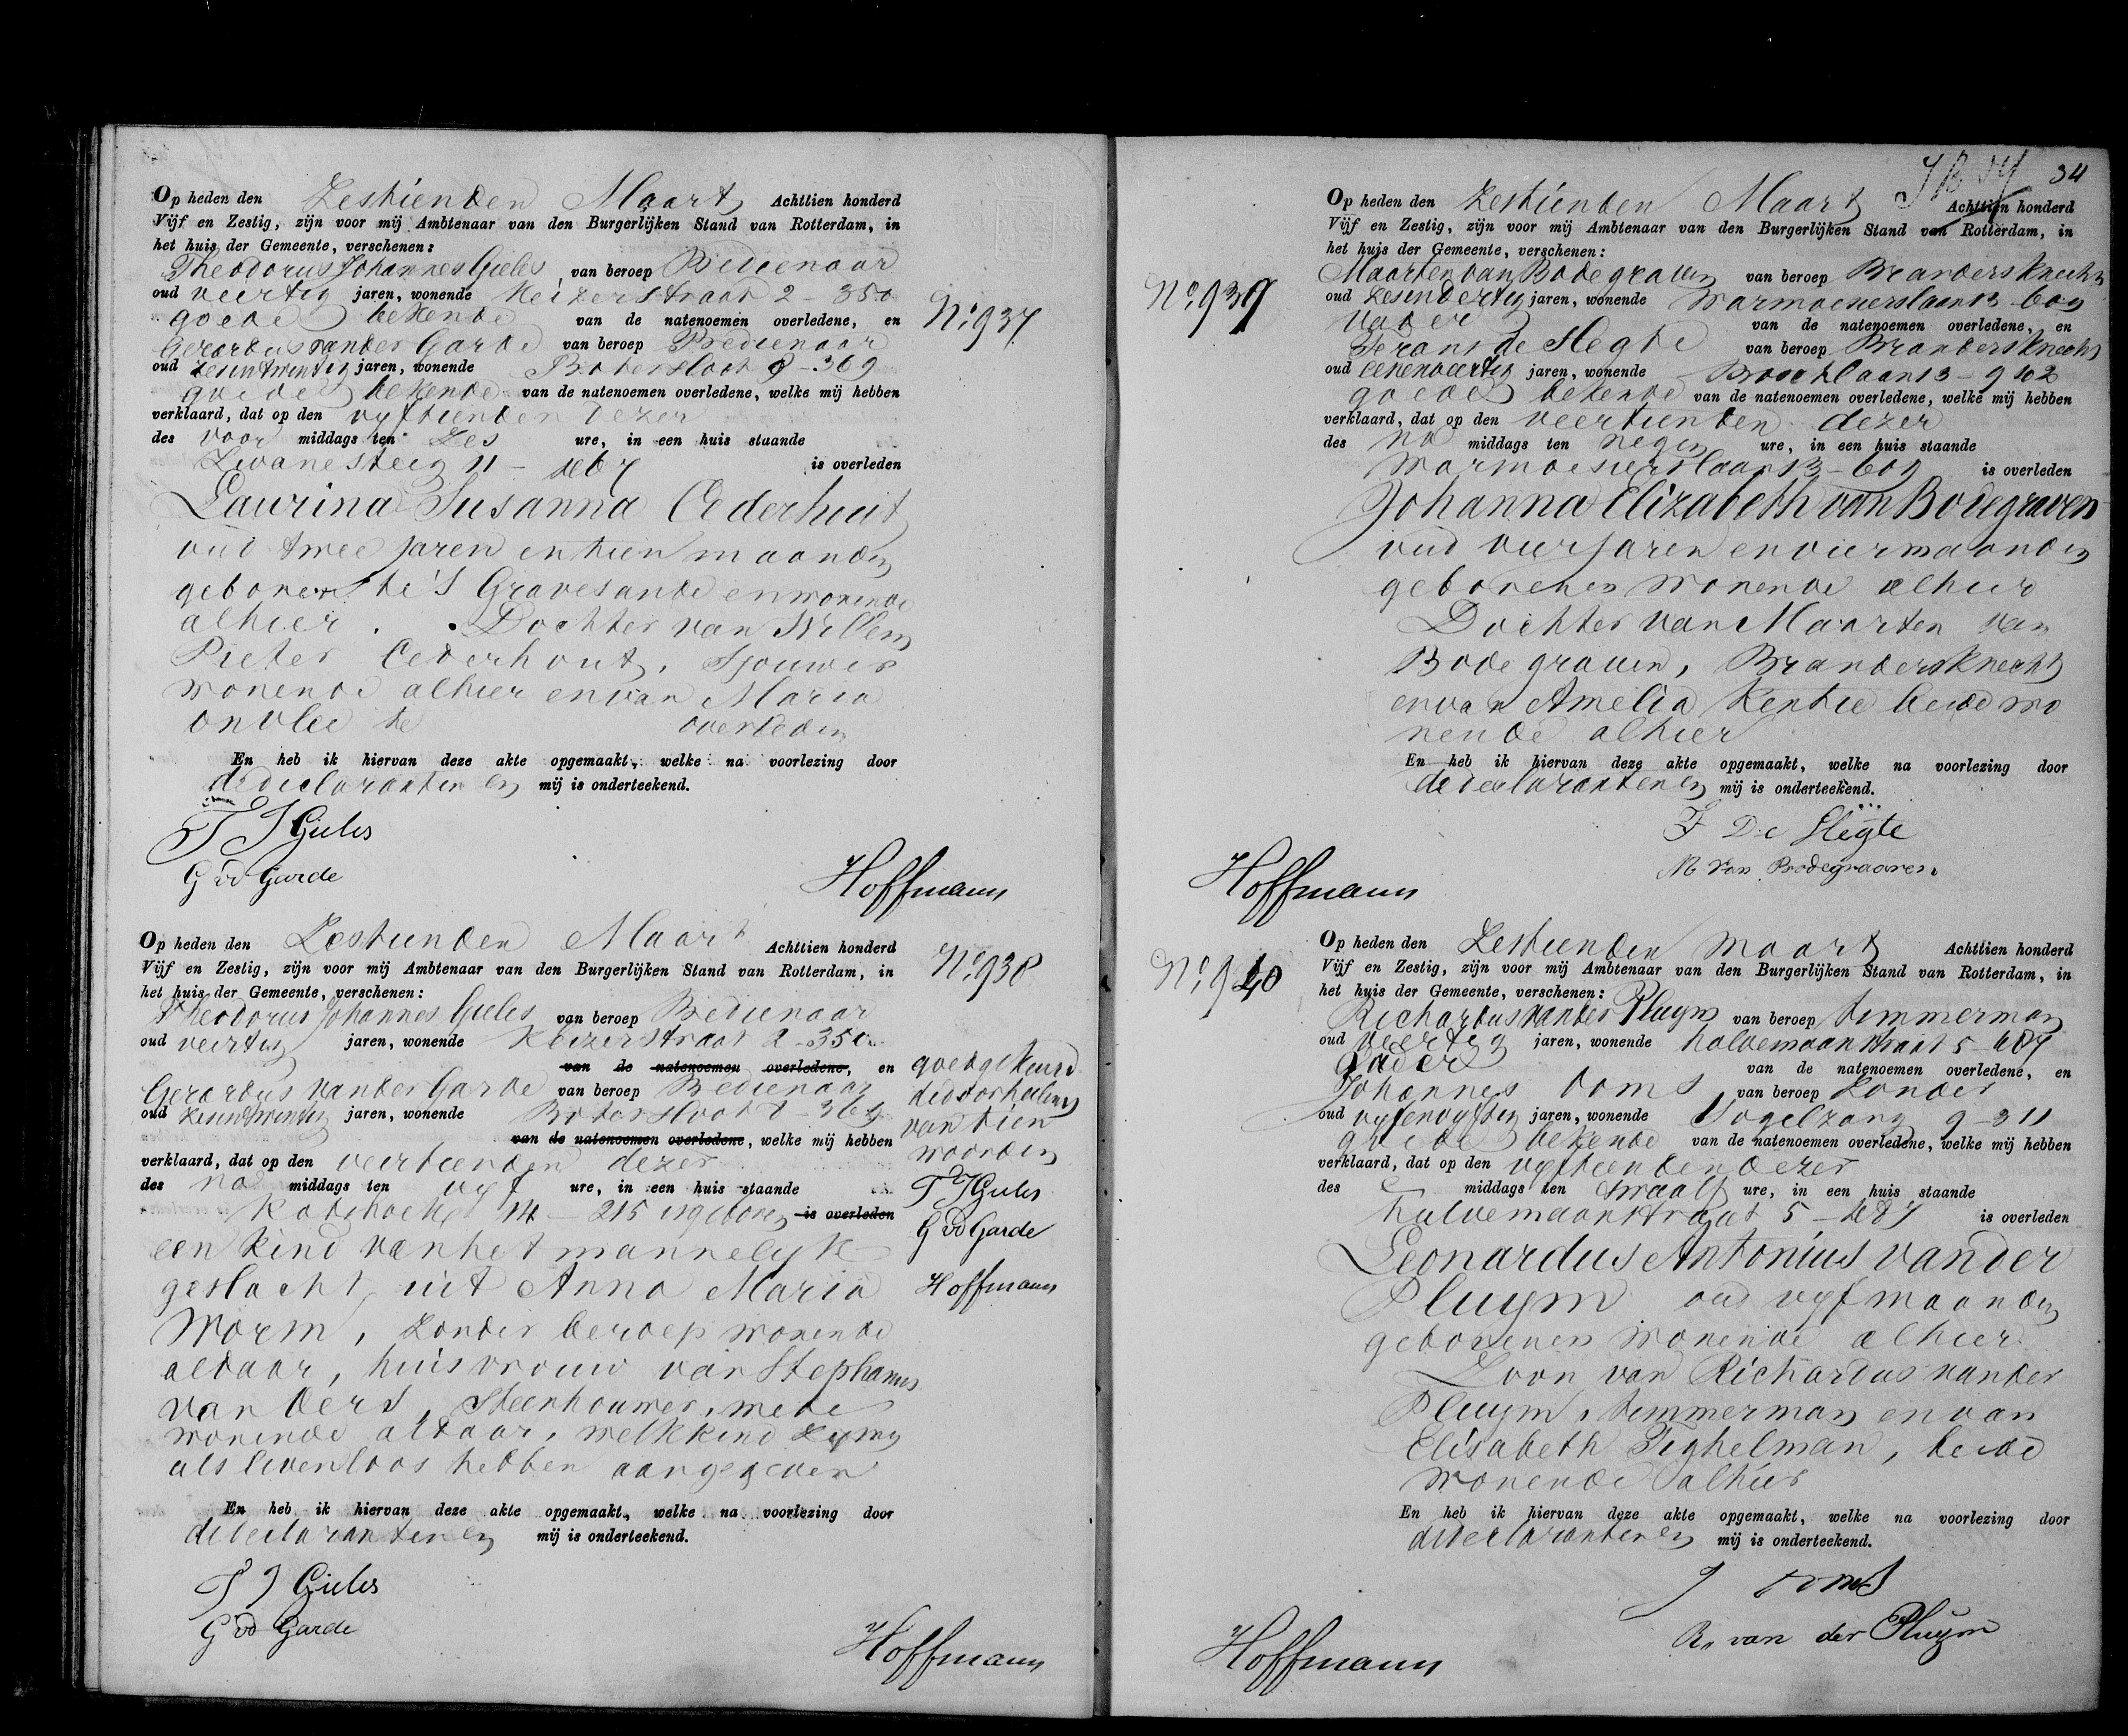 Op heden den Zestienden Maart Achttien honderd
Vijf en Zestig, zijn voor mij Ambtenaar van den Burgerlijken Stand van Rotterdam, in
het huis der Gemeente, verschenen:
Theodorus Johannes Gieles van beroep Bedienaar
oud veertig jaren, wonende Keizerstraat 2-350
goede bekende van de natenoemen overledene, en
Gerardus van der Garde van beroep Bedienaar
oud zesentwintig jaren, wonende Botersloot 8-369
goede bekende van de natenoemen overledene, welke mij hebben
verklaard, dat op den vyftienden dezer
des voor middags ten zes ure, in een huis staande
Zwanesteeg 11 - is overleden
Laurina Susanna Cederhout
oud twee jaren en tien maanden
geboren te 's Gravesande en wonende
alhier. Dochter van Willem
Pieter Cederhout, Sjouwer
wonende alhier en van Maria
Onvlee te overleden
En heb ik hiervan deze akte opgemaakt, welke na voorlezing door
de declaranten en mij is onderteekend.
T J Gieles
G vd Garde
Hoffmann
No. 937
Op heden den Zestienden Maart Achttien honderd
Vijf en Zestig, zijn voor mij Ambtenaar van den Burgerlijken Stand van Rotterdam, in
het huis der Gemeente, verschenen:
Theodorus Johannes Gieles van beroep Bedienaar
oud veertig jaren, wonende Keizerstraat 2-350
van de natenoemen overledene, en
Gerardus van der Garde van beroep Bedienaar
oud zesentwintig jaren, wonende Botersloot 369
van de natenoemen overledene, welke mij hebben
verklaard, dat op den veertienden dezer
des na middags ten vyf ure, in een huis staande
14 - 215 is geboren is overleden
een kind van het mannelyk
geslacht, uit Anna Maria
Worm, zonder beroep wonende
aldaar, huisvrouw van Stephanus
van Oers, Steenhouwer, mede
wonende aldaar, welk kind zy my
als levenloos hebben aangegeven
En heb ik hiervan deze akte opgemaakt, welke na voorlezing door
de declaranten en mij is onderteekend.
T J Gieles
G vd Garde
Hoffmann
No. 938
goedgekeurd
de doorhaling
van tien
woorden
T J Gieles
G vd Garde
Hoffmann
34
Op heden den Zestienden Maart Achttien honderd
Vijf en Zestig, zijn voor mij Ambtenaar van den Burgerlijken Stand van Rotterdam, in
het huis der Gemeente, verschenen:
No. 939
Maarten van Bodegraven van beroep Brandersknecht
oud zesendertig jaren, wonende Warmoezierslaan 13-609
Vader van de natenoemen overledene, en
Frans de Slegte van beroep Brandersknecht
oud eenenveertig jaren, wonende
goede bekende van de natenoemen overledene, welke mij hebben
verklaard, dat op den veertienden dezer
des na middags ten negen ure, in een huis staande
Warmoezierslaan 13-609 is overleden
Johanna Elizabeth van Bodegraven
oud vier jaren en vier maanden
geboren en wonende alhier
Dochter van Maarten van
Bodegraven, Brandersknecht
en van Amelia Kentie beide wo
nende alhier
En heb ik hiervan deze akte opgemaakt, welke na voorlezing door
de declaranten en mij is onderteekend.
F De Slegte
M Van Bodegraaven.
Hoffmann
Op heden den Zestienden Maart Achttien honderd
Vijf en Zestig, zijn voor mij Ambtenaar van den Burgerlijken Stand van Rotterdam, in
het huis der Gemeente, verschenen:
No. 940
Richardus van der Pluym van beroep timmerman
oud veertig jaren, wonende halvemaanstraat 5-487
Vader van de natenoemen overledene, en
Johannes Toms van beroep Zonder
oud vyfenvyftig jaren, wonende Vogelzang 9-311
goede bekende van de natenoemen overledene, welke mij hebben
verklaard, dat op den vyftienden dezer
des middags ten twaalf ure, in een huis staande
halvemaanstraat 5-487 is overleden
Leonardus Antonius van der
Pluym oud vyf maanden
geboren en wonende alhier
Zoon van Richardus van der
Pluym, timmerman en van
Elisabeth Tighelman, beide
wonende alhier
En heb ik hiervan deze akte opgemaakt, welke na voorlezing door
de declaranten en mij is onderteekend.
J Toms
R. van der Pluym
Hoffmann